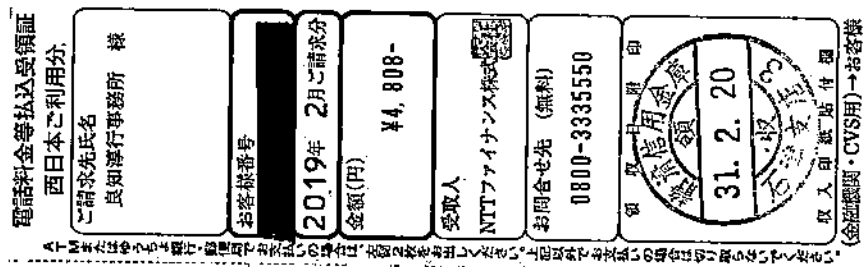 電話料金等払込受領証
西日本ご利用分
ご請求先氏名
良知淳行事務所 様
お客様番号
2019年 2月ご請求分
金額(円)
¥4,808-
受取人
NTTファイナンス株式会社
お問合せ先 (無料)
0800-3335550
領収日附印
信用金庫
領収
31.2.20
収入印紙貼付欄
(金融機関・CVS用)→お客様
ATMまたはゆうちょ銀行・郵便局でお支払いの場合は、左右2枚をお出しください。上記以外でお支払いの場合は切り取らないでください。